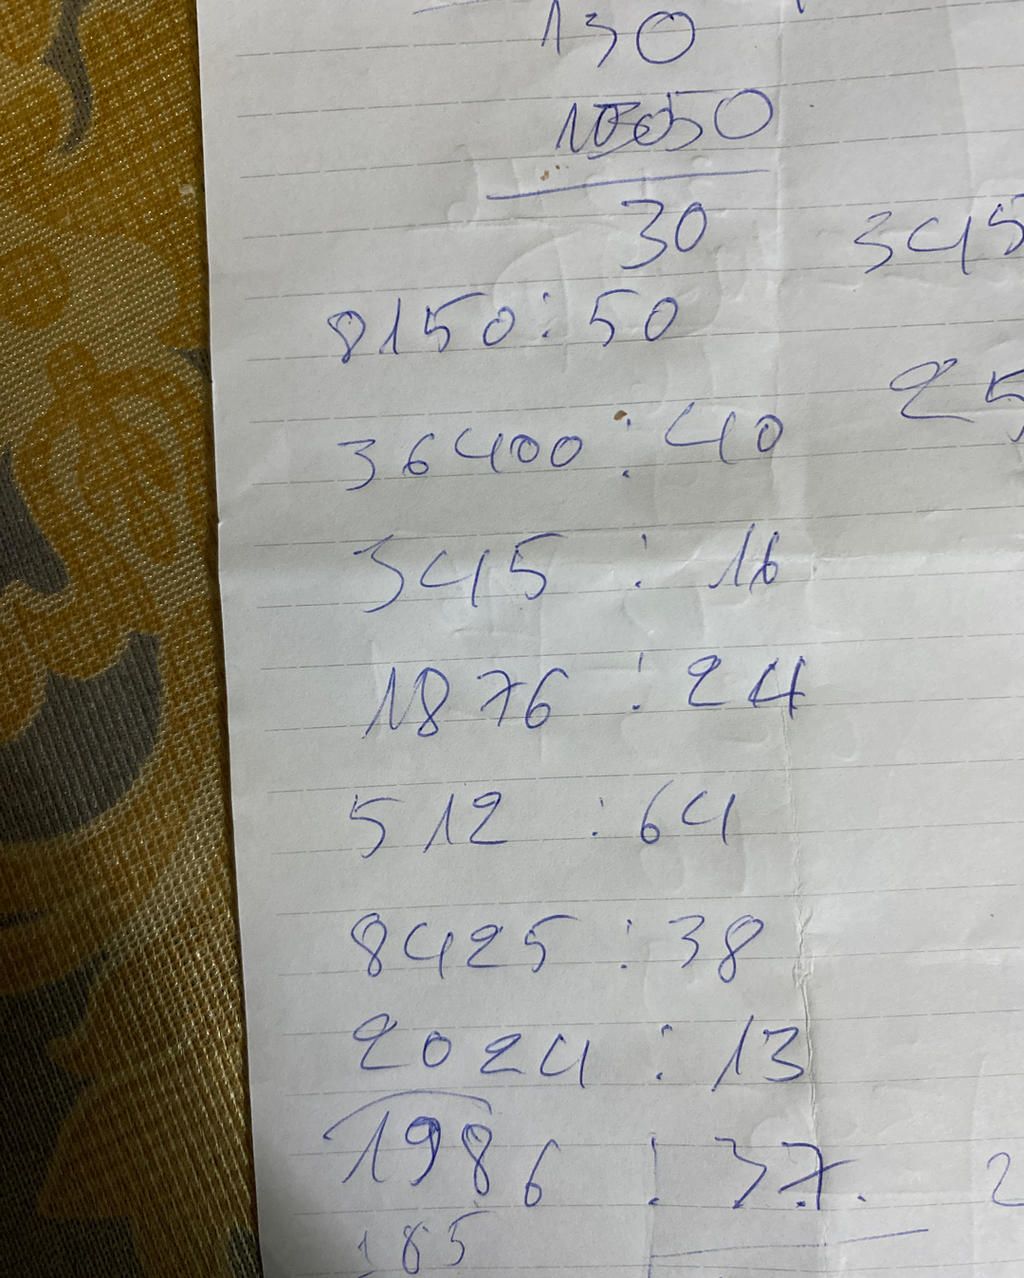 130
30
345
8150:50
25
36400:40
345:16
1876:24
512:64
8425:38
2024:13
1986:37.
2
185